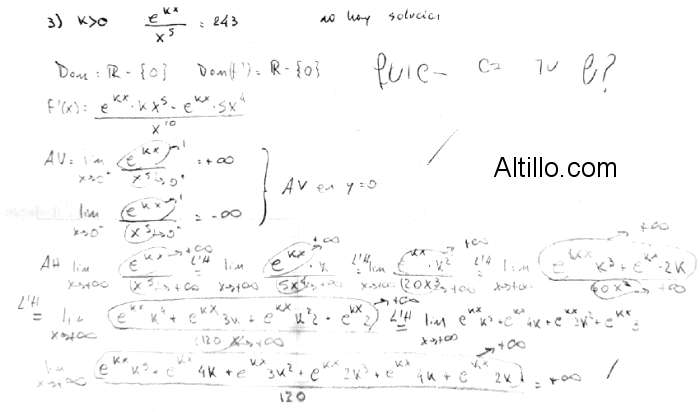 3) K>0 e^{Kx}/x^5 = 243 no hay solución
Dom = ℝ - {0} Dom(f') = ℝ - {0}
f'(x) = (e^{Kx}·Kx^5 - e^{Kx}·5x^4)/x^{10}
Altillo.com
AV = lim x→0^+ e^{Kx}→1 / x^5→0^+ = +∞
lim x→0^- e^{Kx}→1 / x^5→0^- = -∞
} AV en y=0
AH lim x→+∞ e^{Kx}→+∞ / x^5→+∞ L'H = lim x→+∞ e^{Kx}·K→+∞ / 5x^4→+∞ L'H = lim x→+∞ e^{Kx}·K^2→+∞ / 20x^3→+∞ L'H = lim e^{Kx} K^3 + e^{Kx}·2K→+∞ / 60x^2→+∞
L'H = lim x→+∞ e^{Kx} K^4 + e^{Kx} 3K + e^{Kx} K^2 2 + e^{Kx} 2→+∞ / 120x→+∞ L'H = lim x→+∞ e^{Kx} K^5 + e^{Kx} 4K + e^{Kx}
lim x→+∞ e^{Kx} K^5 + e^{Kx} 4K + e^{Kx} 3K^2 + e^{Kx} 2K^3 + e^{Kx} 4K + e^{Kx} 2K→+∞ / 120 = +∞